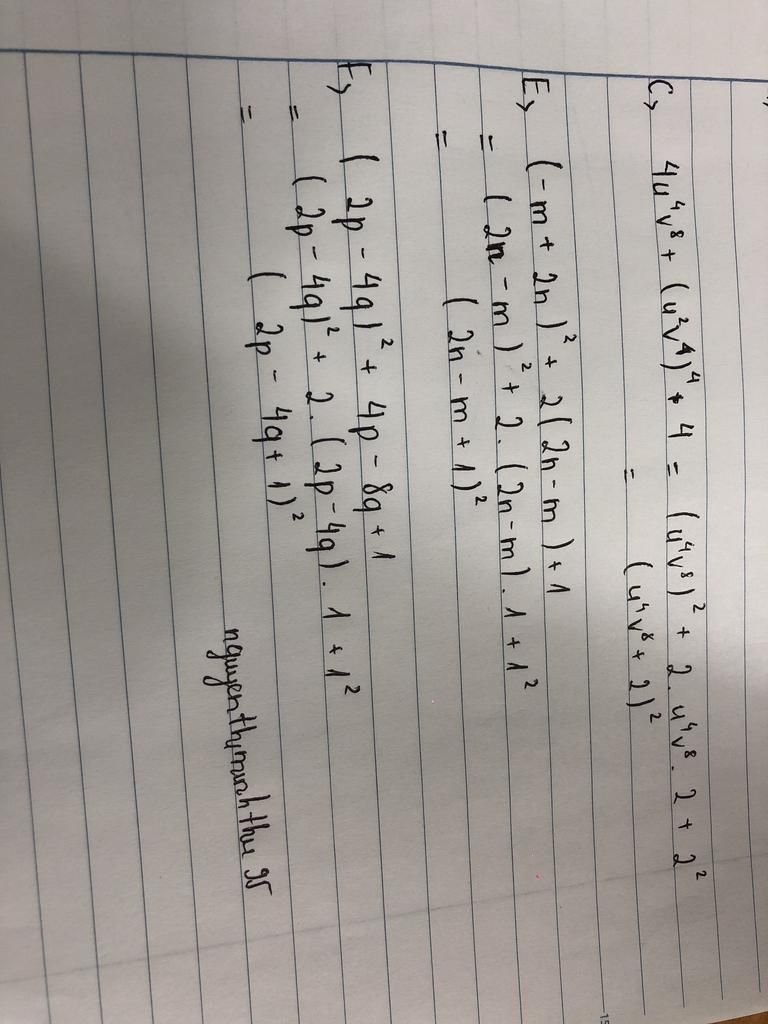 C, 4u⁴v⁸ + (u²v⁴)⁴ + 4 = (u⁴v⁸)² + 2.u⁴v⁸.2 + 2²
= (u⁴v⁸ + 2)²
E, (-m + 2n)² + 2(2n - m) + 1
= (2n - m)² + 2.(2n - m).1 + 1²
= (2n - m + 1)²
F, (2p - 4q)² + 4p - 8q + 1
= (2p - 4q)² + 2.(2p - 4q).1 + 1²
= (2p - 4q + 1)²
nguyenthyminhthu
15